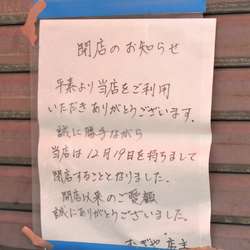 閉店のお知らせ
平素より当店をご利用
いただきありがとうございます.
誠に勝手ながら
当店は12月19日を持ちまして
閉店することとなりました.
開店以来のご愛顧
誠にありがとうございました.
店主